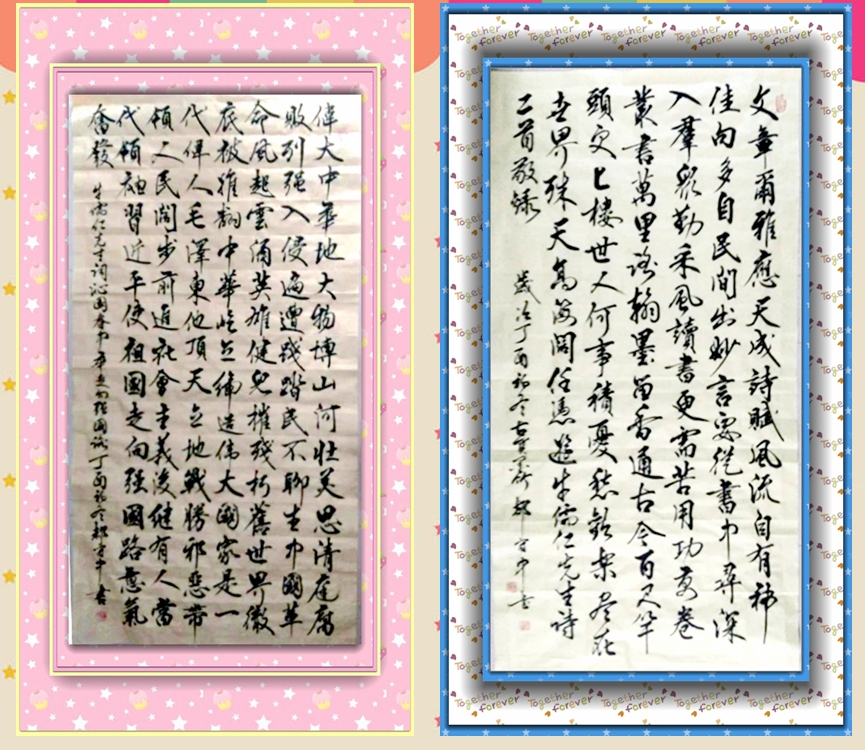 偉大中華地大物博山河壯美思清庭腐
敗列强入侵遍遭践踏民不聊生中國革
命風起雲涌英雄健兒摧殘朽舊世界徹
底被推翻中華屹立締造偉大國家是一
代偉人毛澤東他頂天立地戰勝邪惡帶
領人民闊步前進社會主義後繼有人當
代領袖習近平使祖國走向强國路意氣
奮發
牛儒仁先生詞沁園春中華 丁酉初冬郝守中書
文章爾雅應天成詩賦風流自有神
佳句多自民間出妙言要從書中尋深
入羣衆勤采風讀書更需苦用功萬卷
叢書萬里路翰墨留香通古今百尺竿
頭更上樓世人何事積憂愁欲樂盡在
世界殊天高海闊任憑遊牛儒仁先生詩
二首敬録
歲次丁酉初冬 郝守中書
Together forever